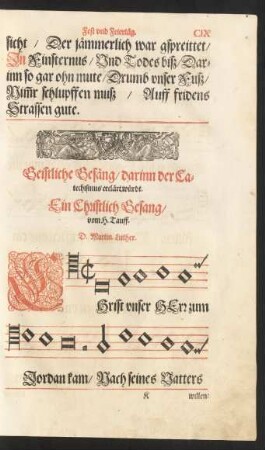 Fest und Feiertäg. CIX
sicht / Der jämmerlich war gspreittet /
In Finsternus / Vnd Todes biß / Dar-
inn so gar ohn mute / Drumb vnser Fuß /
Nuhr schlupffen muß / Auff fridens
Strassen gute.
Geistliche Gesäng / darinn der Ca-
techismus erklärt würdt.
Ein Christlich Gesang /
vom H. Tauff.
D. Martin Luther.
Christ vnser HErr zum
Jordan kam / Nach seines Vatters
K willen /